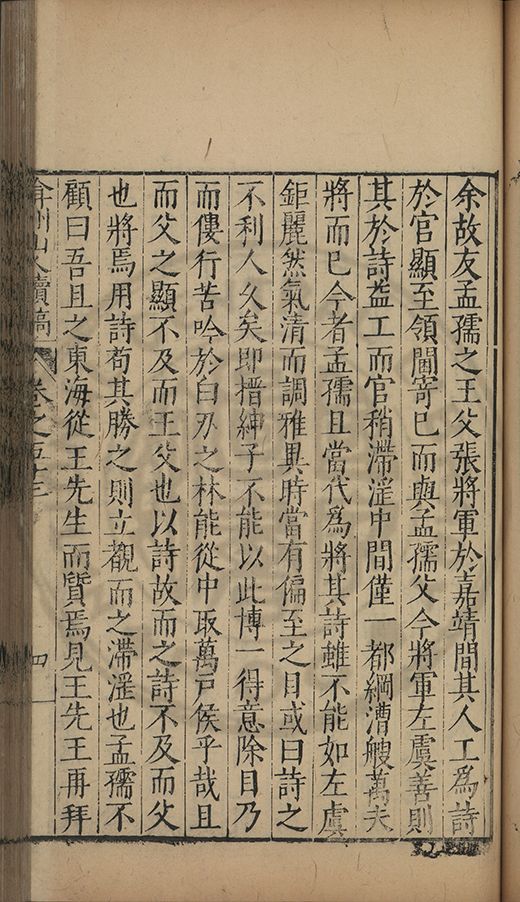 余故友孟孺之王父張將軍於嘉靖間其人工為詩
於官顯至領閫寄已而與孟孺父今將軍左虞善則
其於詩益工而官稍滯滛中間僅一都綱漕艘萬夫
將而已今者孟孺且當代為將其詩雖不能如左虞
鉅麗然氣清而調雅異時當有偏至之目或曰詩之
不利人久矣即搢紳子不能以此博一得意除目乃
而僂行苦吟於白刃之林能從中取萬戶侯乎哉且
而父之顯不及而王父也以詩故而之詩不及而父
也將焉用詩苟其勝之則立觀而之滯滛也孟孺不
顧曰吾且之東海從王先生而質焉見王先王再拜
弇州山人續稿 卷之五十三 四